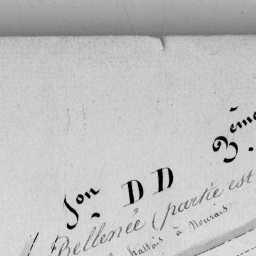 Son DD 3ème
Bellenée (partie est
hallois à Nourais